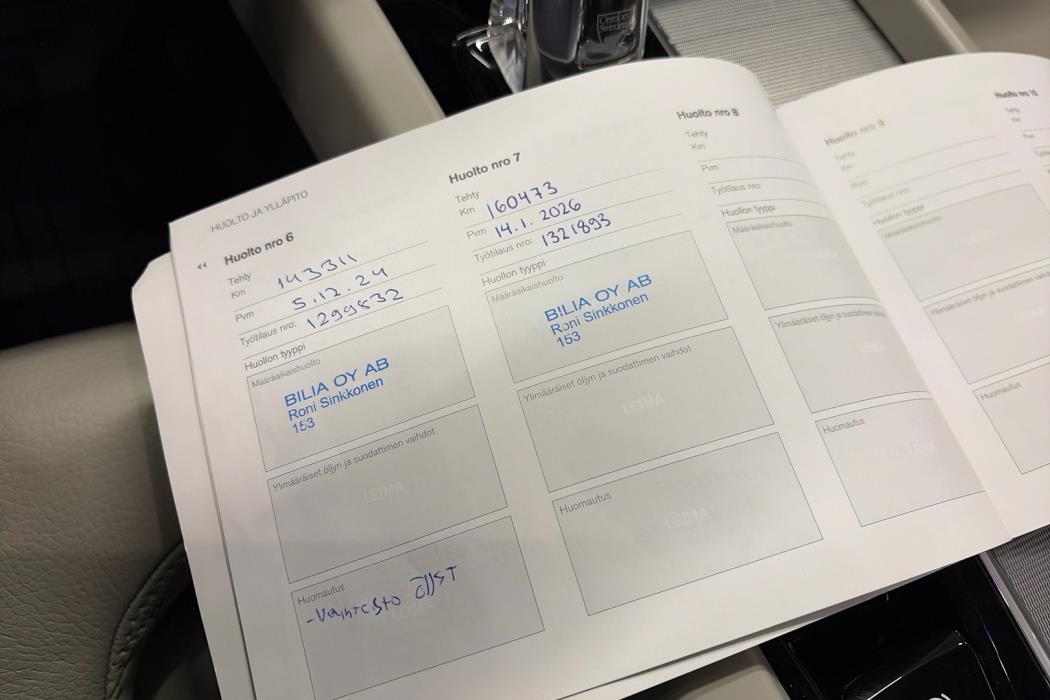 Orrefors
Sweden
HUOLTO JA YLLÄPITO
Huolto nro 6
Tehty
Km 143311
Pvm 5.12.24
Työtilaus nro: 1299832
Huollon tyyppi
Määräaikaishuolto
BILIA OY AB
Roni Sinkkonen
153
Ylimääräiset öljyn ja suodattimen vaihdot
LEIMA
Huomautus
-Vaihteisto öljyt
Huolto nro 7
Tehty
Km 160473
Pvm 14.1.2026
Työtilaus nro: 1321893
Huollon tyyppi
Määräaikaishuolto
BILIA OY AB
Roni Sinkkonen
153
Ylimääräiset öljyn ja suodattimen vaihdot
LEIMA
Huomautus
LEIMA
Huolto nro 8
Tehty
Km
Pvm
Työtilaus nro:
Huollon tyyppi
Määräaikaishuolto
Ylimääräiset öljyn ja suodattimen vaihdot
LEIMA
Huomautus
LEIMA
Huolto nro 9
Tehty
Km
Pvm
Työtilaus nro:
Huollon tyyppi
Määräaikaishuolto
Ylimääräiset öljyn ja suodattimen
Huomautus
Huolto nro 10
Tehty
Km
Pvm